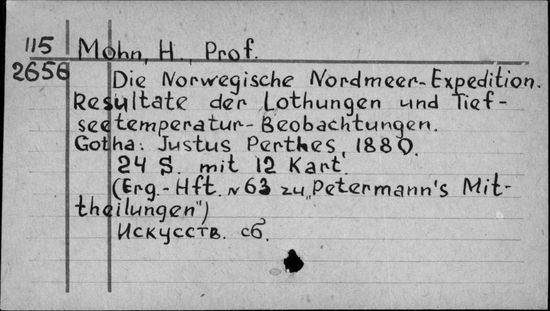 115 Mohn, H., Prof.
2656
Die Norwegische Nordmeer-Expedition.
Resultate der Lothungen und Tief-
seetemperatur-Beobachtungen.
Gotha: Justus Perthes, 1880.
24 S. mit 12 Kart.
(Erg.-Hft. N 63 zu „Petermann's Mit-
theilungen")
Искусств. сб.